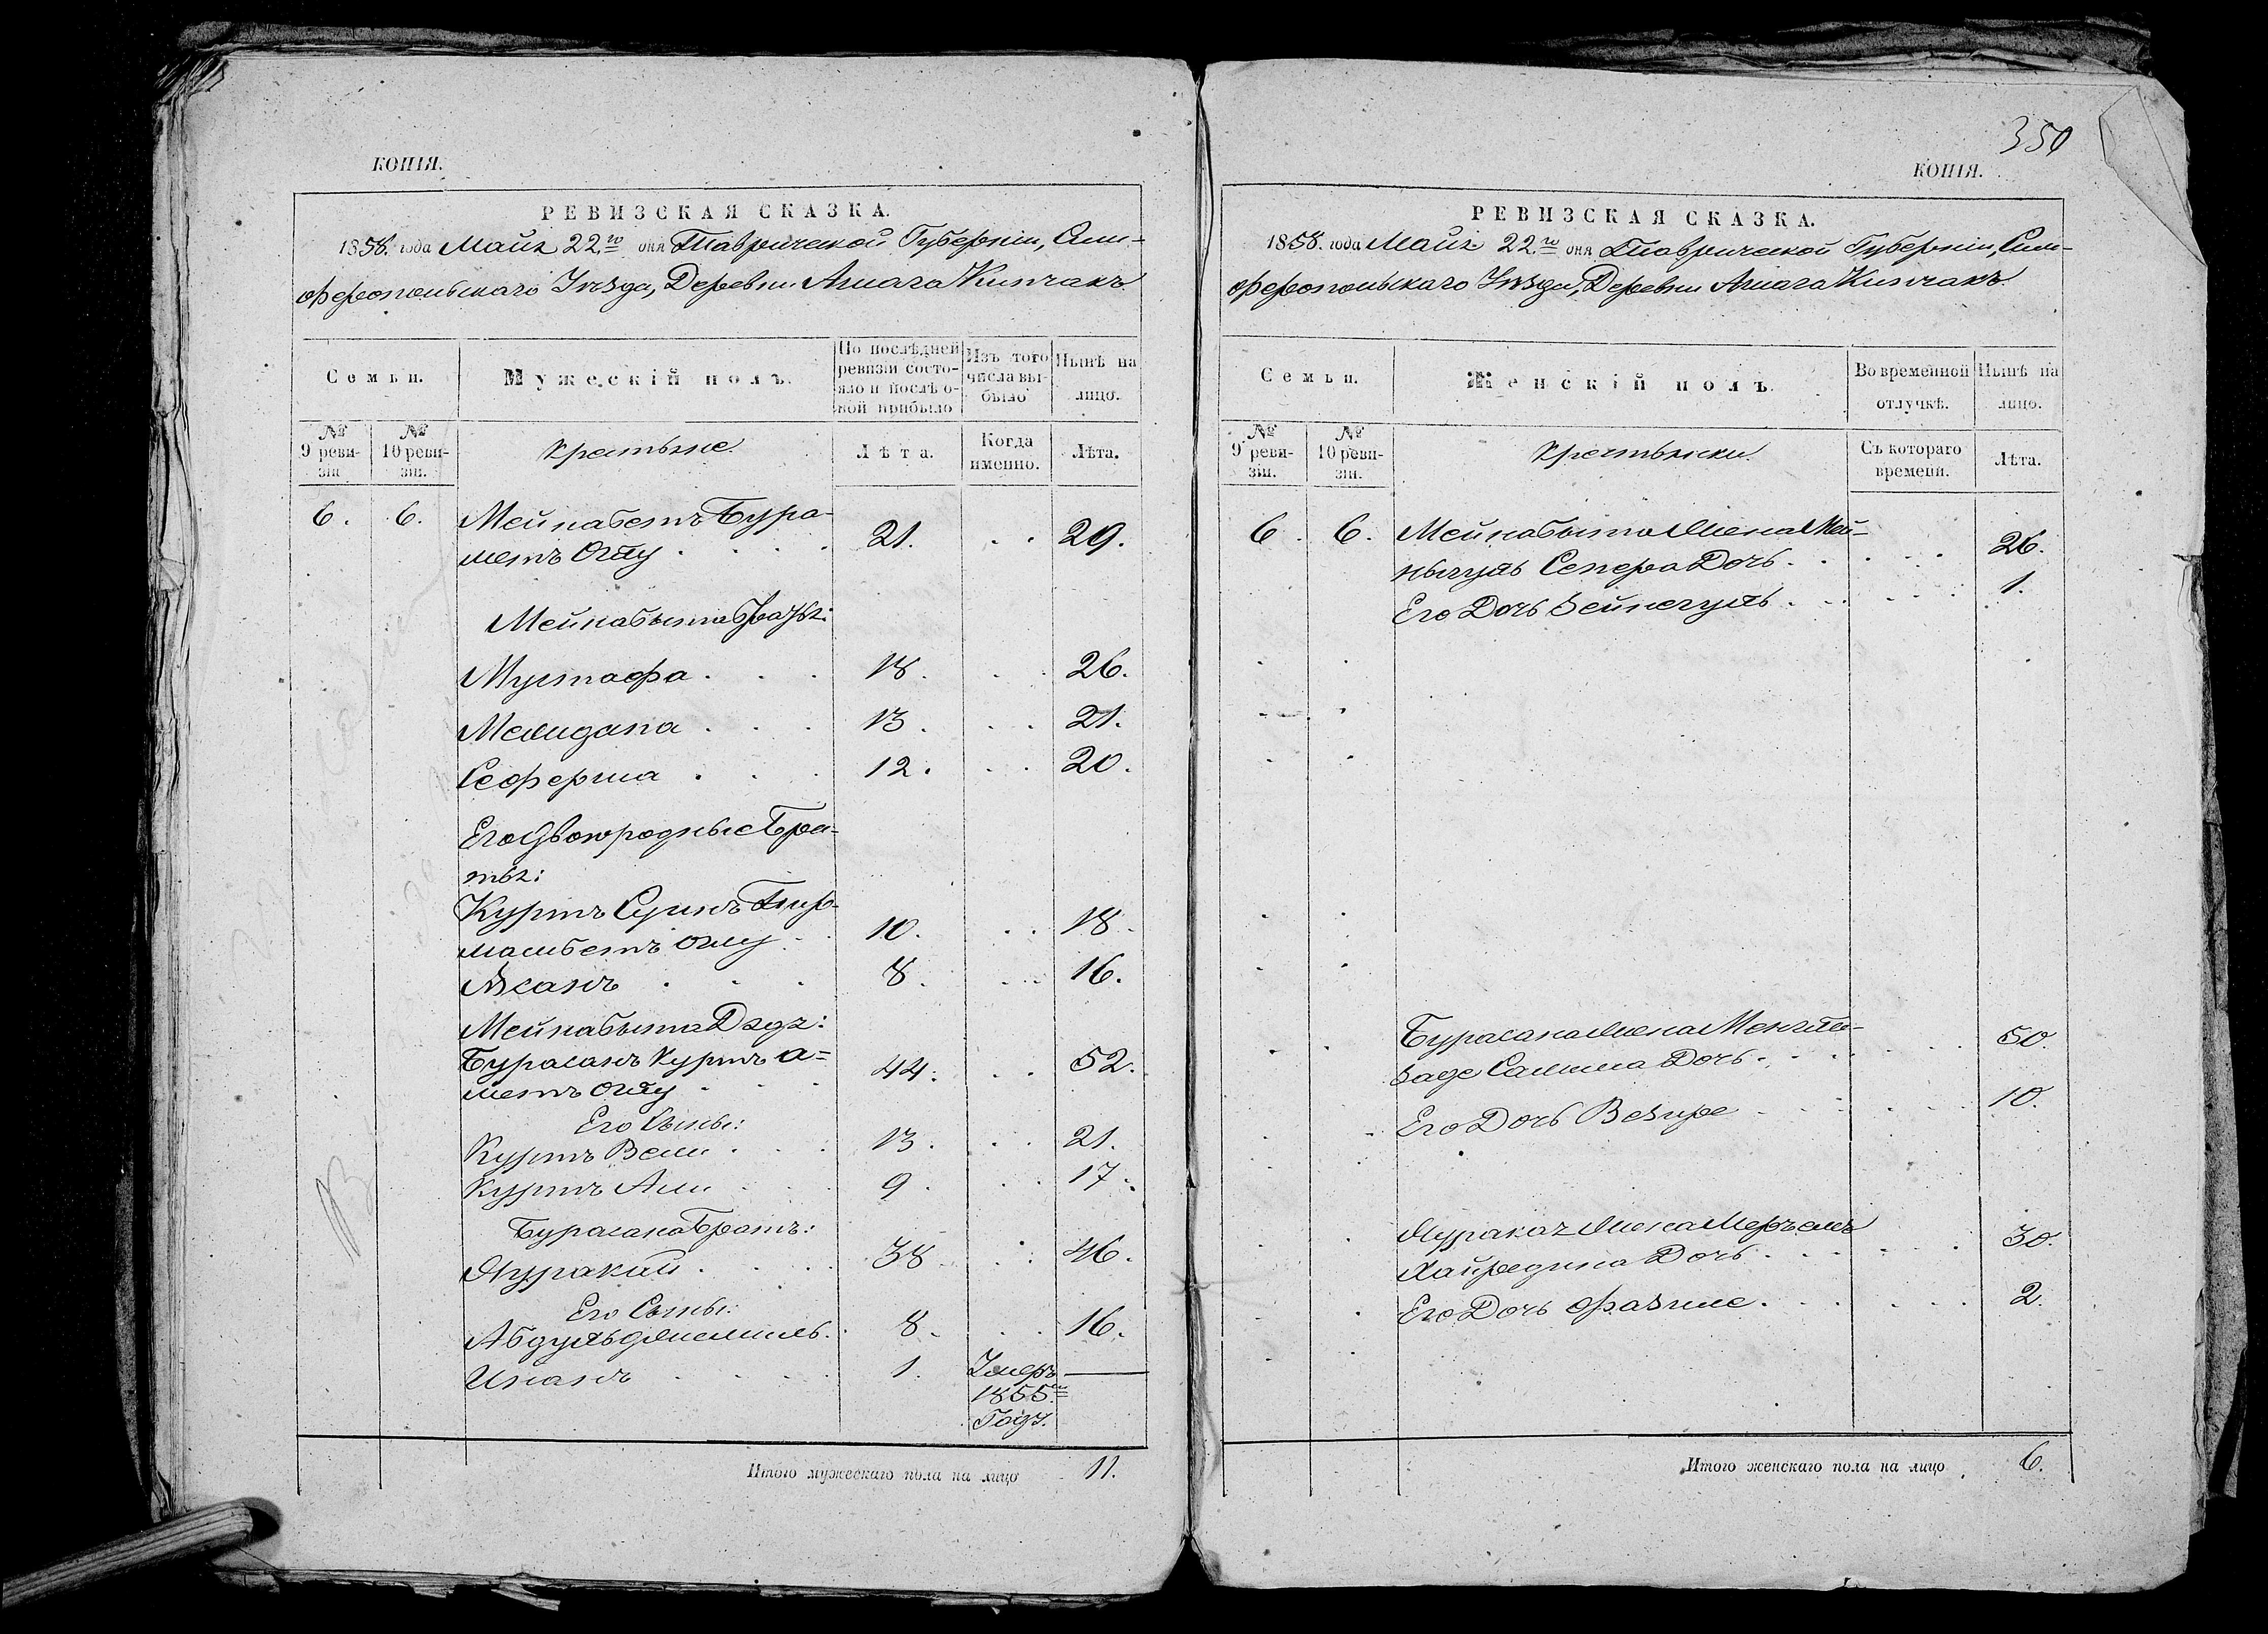 КОПІЯ.
РЕВИЗСКАЯ СКАЗКА.
1858. года Маія 22го дня Таврической Губерніи, Сим-
феропольскаго Уѣзда, Деревни Ашага Кипчакъ
Семьи.
Мужескій полъ.
По послѣдней ревизіи состо-
яло и послѣ о-
ной прибыло
Изъ того числа вы-
было
Нынѣ на лицо.
№ 9 реви-
зіи
№ 10 реви-
зіи.
Крестьяне.
Лѣта.
Когда именно.
Лѣта.
6. 6. Мейнабетъ Бура-
метъ Оглу . . . 21. . . 29.
Мейнабыта Братья:
Мустафа . . . 18. . . 26.
Мевидана . . . 13. . . 21.
Сеферша . . . 12. . . 20.
Его Двоюродные Бра-
тья:
Куртъ Сеинъ Пир-
мамбетъ Оглу . . 10. . . 18.
Асанъ . . . 8. . . 16.
Мейнабыта Дядя:
Бурасанъ Куртъ а=
метъ Оглу . . . 44. . . 52.
Его Сыны:
Куртъ Вели . . . 13. . . 21.
Куртъ Али . . . 9. . . 17.
Бурасана Братъ:
Нуракай . . . 38. . . 46.
Его Сыны:
Абдульджемиль. . 8. . . 16.
Исанъ . . . 1. Умеръ —
1855м
Году.
Итого мужескаго пола на лицо 11.
350
КОПІЯ.
РЕВИЗСКАЯ СКАЗКА.
1858. года Маія 22го дня Таврической Губерніи, Сим-
феропольскаго Уѣзда, Деревни Ашага Кипчакъ
Семьи.
Женскій полъ.
Во временной отлучкѣ.
Нынѣ на лицо.
№ 9 реви-
зіи.
№ 10 реви-
зіи.
Крестьянки
Съ котораго времени.
Лѣта.
6. 6. Мейнабыта Жена Мей-
ныгуль Сепера Дочь . . . 26.
Его Дочь Зейнегуль . . . 1.
Бурасана Жена Менгли-
заде Салиша Дочь . . . 50.
Его Дочь Везире . . . 10.
Нуракая Жена Меръемъ
Хайредина Дочь . . . 30.
Его Дочь Фазиле . . . 2.
Итого женскаго пола на лицо 6.